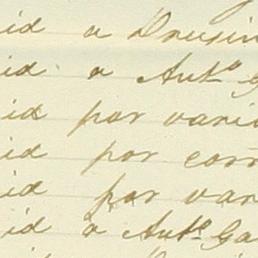 id a Drusin
id a Anto G
id por vari
id por corr
id por var
id a Anto Ga